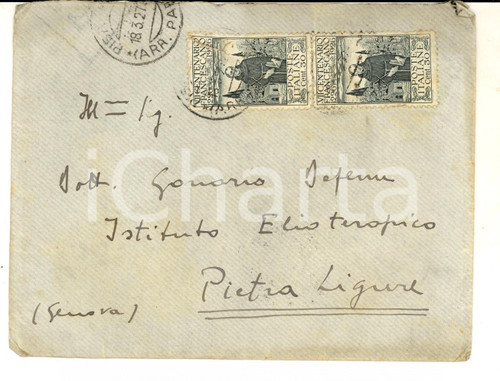 18.3.27
(ARR. PAR
VII CENTENARIO FRANCESCANO
POSTE ITALIANE
Cent. 30
VII CENTENARIO FRANCESCANO
POSTE ITALIANE
Cent. 30
Ill= Sig.
iCharta
Dott. Gonario Deffenu
Istituto Elioterapico
Pietra Ligure
(Genova)